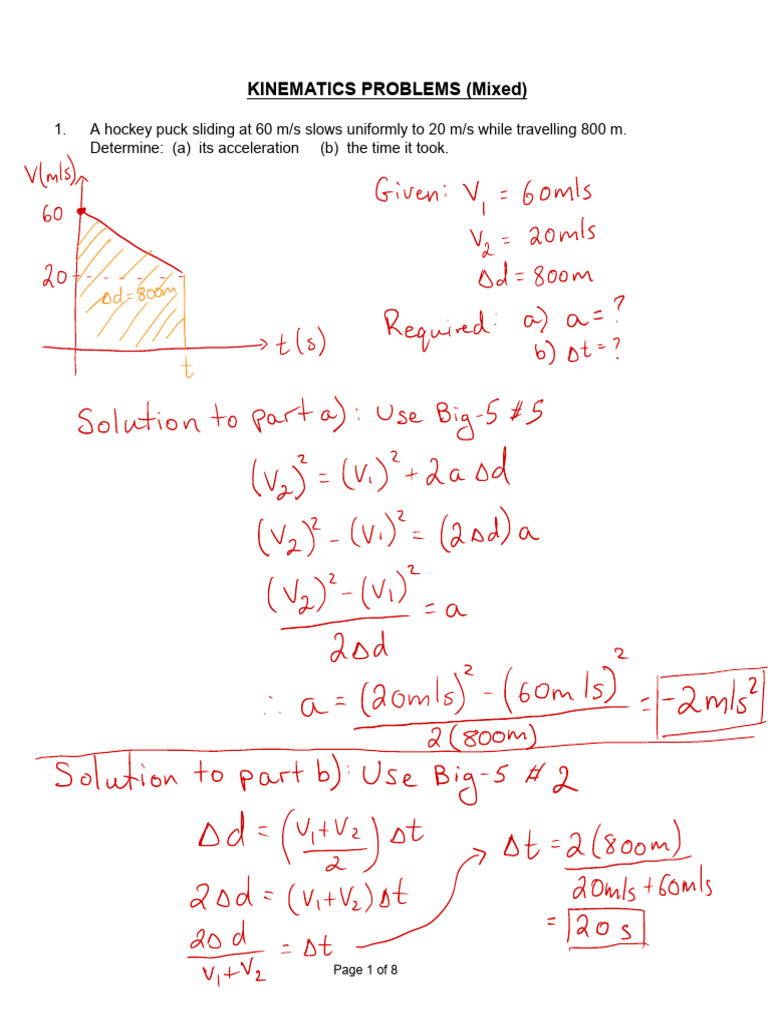 KINEMATICS PROBLEMS (Mixed)
1. A hockey puck sliding at 60 m/s slows uniformly to 20 m/s while travelling 800 m.
Determine: (a) its acceleration (b) the time it took.
V(m/s)
60
20
Δd=800m
t(s)
t
Given: V₁ = 60m/s
V₂ = 20m/s
Δd = 800m
Required: a) a = ?
b) Δt = ?
Solution to part a): Use Big-5 #5
(V₂)² = (V₁)² + 2aΔd
(V₂)² - (V₁)² = (2Δd)a
(V₂)² - (V₁)² / 2Δd = a
∴ a = (20m/s)² - (60m/s)² / 2(800m) = -2m/s²
Solution to part b): Use Big-5 #2
Δd = (V₁+V₂ / 2)Δt
2Δd = (V₁+V₂)Δt
2Δd / V₁+V₂ = Δt
Δt = 2(800m) / 20m/s+60m/s
= 20 s
Page 1 of 8